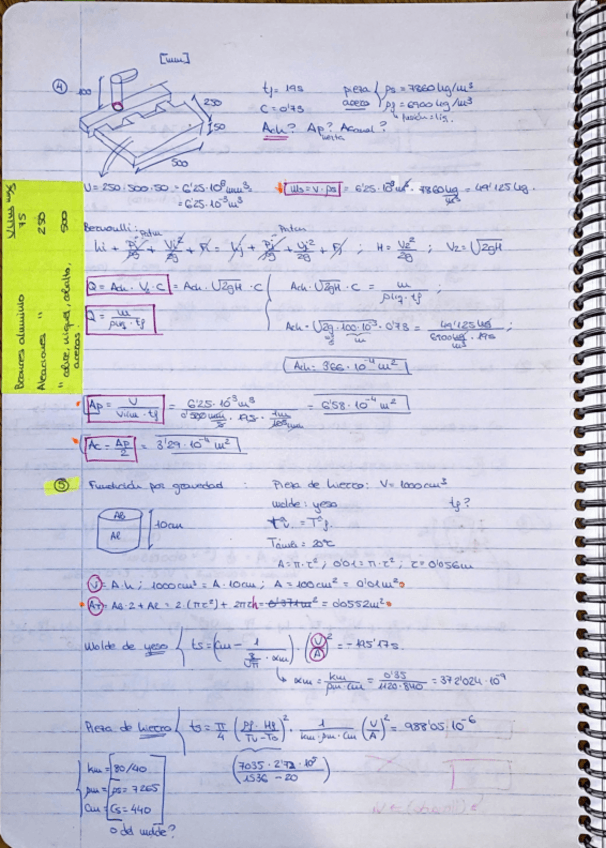 [mm]
④
100
250
50
500
tf= 19s
C = 0'73
Ach? Ap? Acanal?
pieza acero { ρs = 7860 kg/m³
ρf = 6900 kg/m³
V = 250·500·50 = 6'25·10⁶ mm³
= 6'25·10⁻³ m³
ms = V·ρs = 6'25·10⁻³ m³ · 7860 kg/m³ = 49'125 kg.
Bernoulli:
Patm
Patm
hi + Pi/ρg + Vi²/2g + Fi = hj + Pj/ρg + Vj²/2g + Fj ; H = V2²/2g ; V2 = √2gH
Q = Ach · Vj · C = Ach·√2gH · C
Ach·√2gH · C = m/ρliq · tf
Q = m/ρliq · tf
Ach·√2g·100·10⁻³ · 0'73 = 49'125 kg/6900 kg/m³ · 19s ;
Ach = 3'66·10⁻⁴ m²
Ap = V/Vllm · tf = 6'25·10⁻³ m³/0'500 · 19s · = 6'58·10⁻⁴ m²
Ac = Ap/2 = 3'29·10⁻⁴ m²
Vllm
75
250
500
Bronces aluminio
Aleaciones "
" cobre, niquel, cobalto, aceros.
⑤ Fundición por gravedad :
Pieza de hierro: V = 1000 cm³
molde: yeso
tf?
Tamb = 20°C
AB
Al
10cm
A = π·r² ; 0'01 = π·r² ; r = 0'056m
V = A·h ; 1000cm³ = A·10cm ; A = 100cm² = 0'01m²
AT = AB·2 + Al = 2·(πr²) + 2πrh = = 0'0552m²
Molde de yeso { ts = (Cm - 1/ · αm) · (V/A)² = -195'17s.
αm = km/ρm·Cm = 0'35/1120·840 = 372'024·10⁻⁹
Pieza de hierro { ts = π/4 (ρf · Hf/Tv - To)² · 1/km·ρm·Cm (V/A)² = 988'05·10⁻⁶
(7035 · 2'72 · 10⁵/1536 - 20)
km = 80/40
ρm = ρs = 7265
Cm = Cs = 440
o del molde?